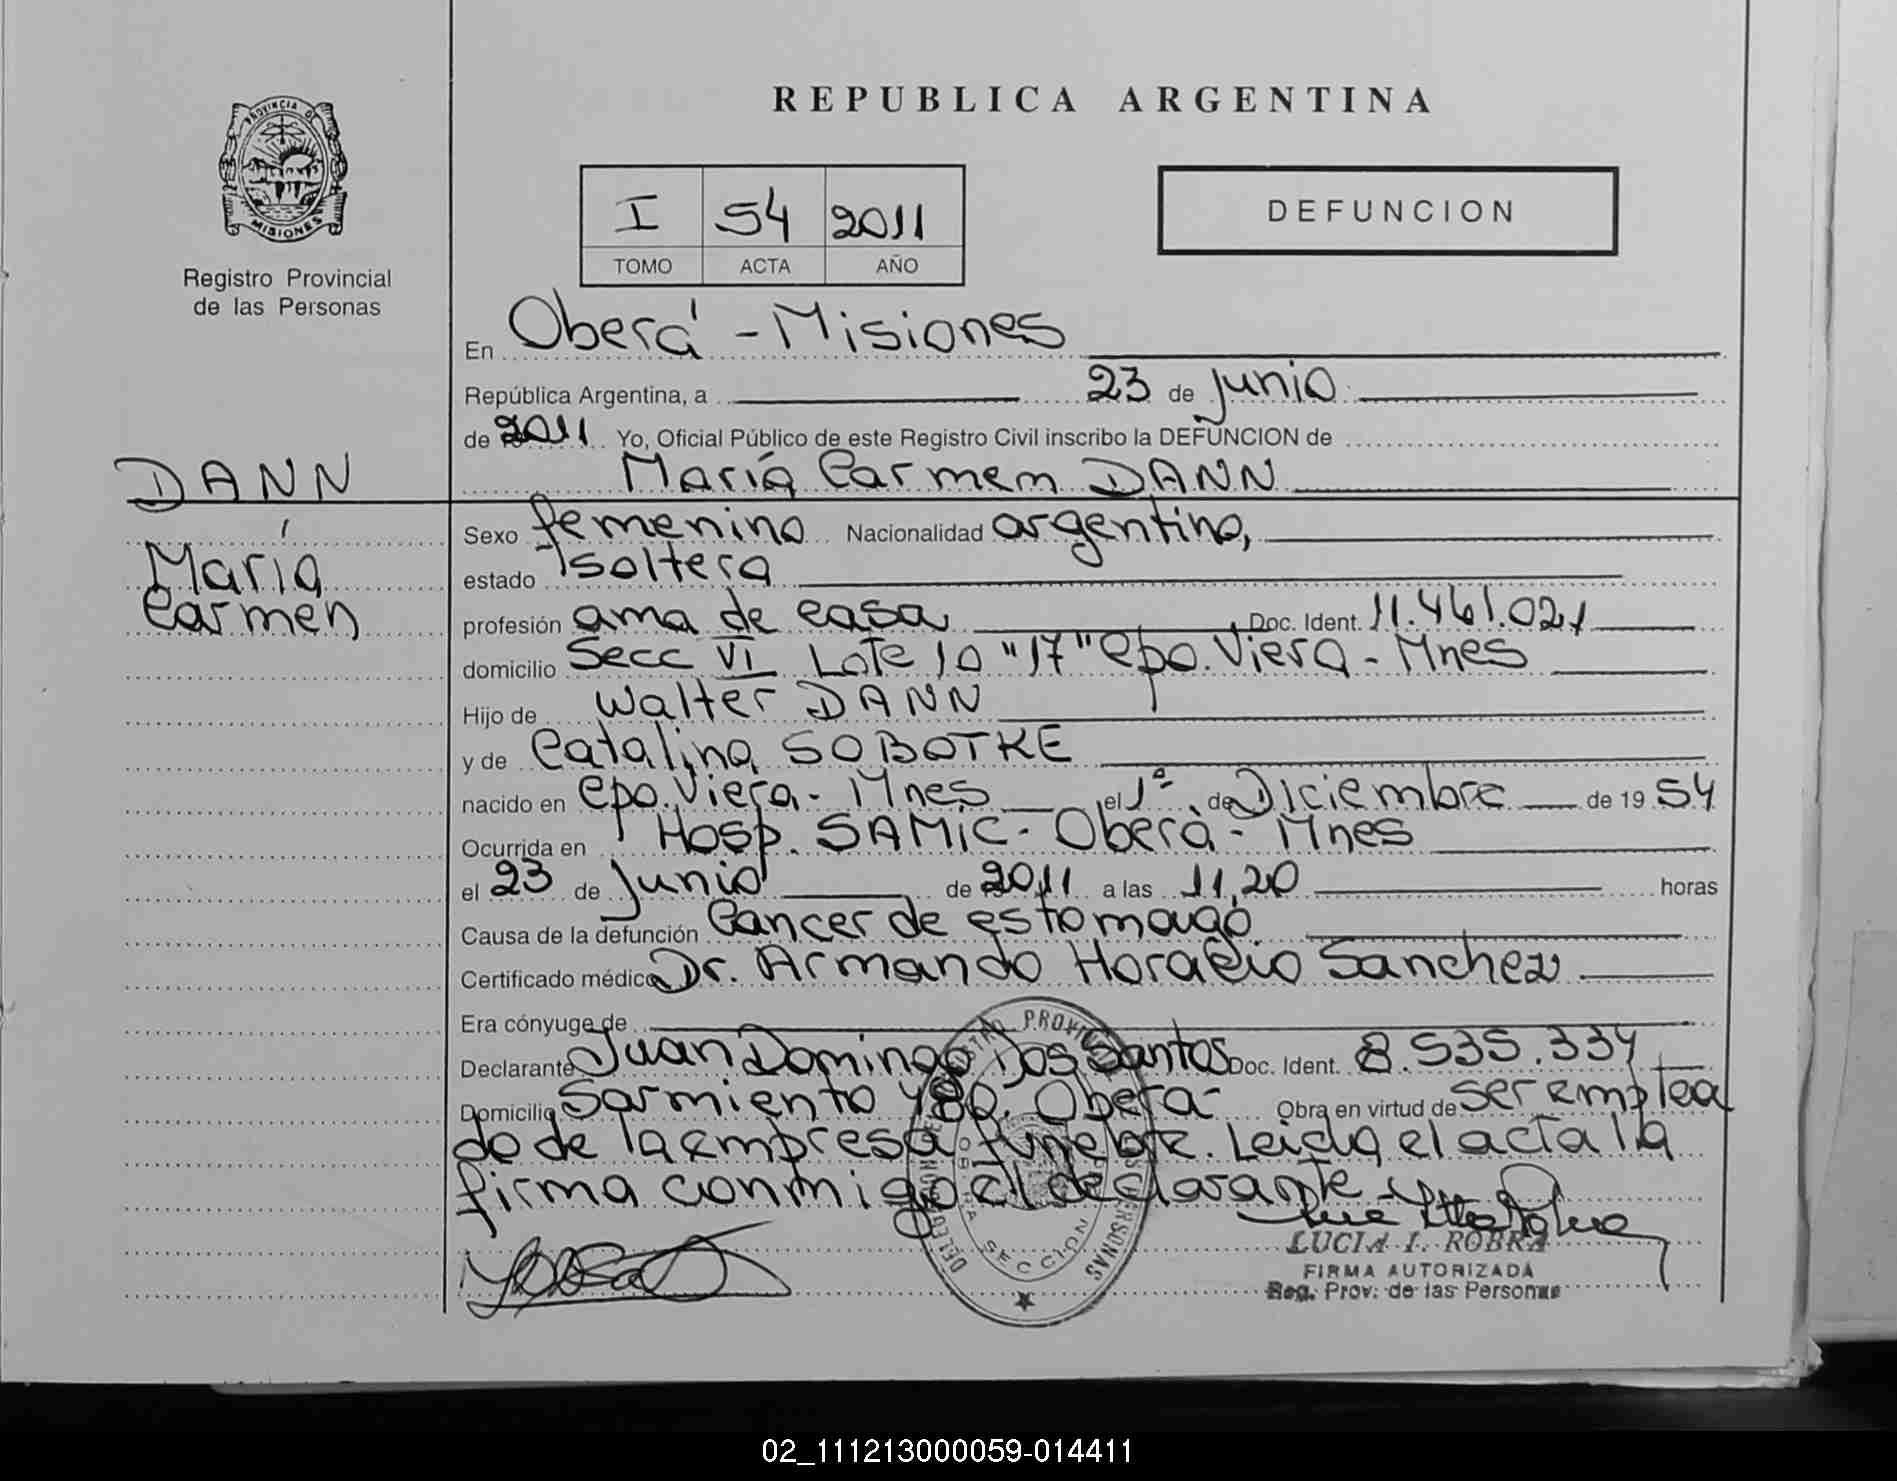 REPUBLICA ARGENTINA
PROVINCIA DE
MISIONES
Registro Provincial
de las Personas
I 54 2011
TOMO ACTA AÑO
DEFUNCION
En Oberá - Misiones
República Argentina, a 23 de junio
de 2011 Yo, Oficial Público de este Registro Civil inscribo la DEFUNCION de
María Carmem DANN
DANN
María
Carmen
Sexo femenino Nacionalidad argentina,
estado soltera
profesión ama de casa Doc. Ident. 11.461.021
domicilio Secc VI Lote 10 "17" Cpo. Viera - Mnes
Hijo de Walter DANN
y de Catalina SOBOTKE
nacido en Cpo. Viera - Mnes el 1º de Diciembre de 19 54
Ocurrida en Hosp. SAMIC - Oberá - Mnes
el 23 de junio de 2011 a las 11,20 horas
Causa de la defunción Cancer de estomago
Certificado médico Dr. Armando Horacio Sanchez
Era cónyuge de
Declarante Juan Domingo Dos Santos Doc. Ident. 8.535.334
Domicilio Sarmiento 480. Oberá - Obra en virtud de ser emplea
do de la empresa funebre. Leida el acta la
firma conmigo el declarante
LUCIA I. ROBRA
FIRMA AUTORIZADA
Reg. Prov. de las Personas
SECCION
02_111213000059-014411